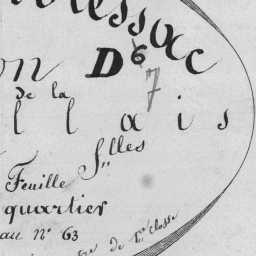 essac
on D 6
7
de la
llais
Slles
Feuille
quartier
au n° 63
de 1re classe